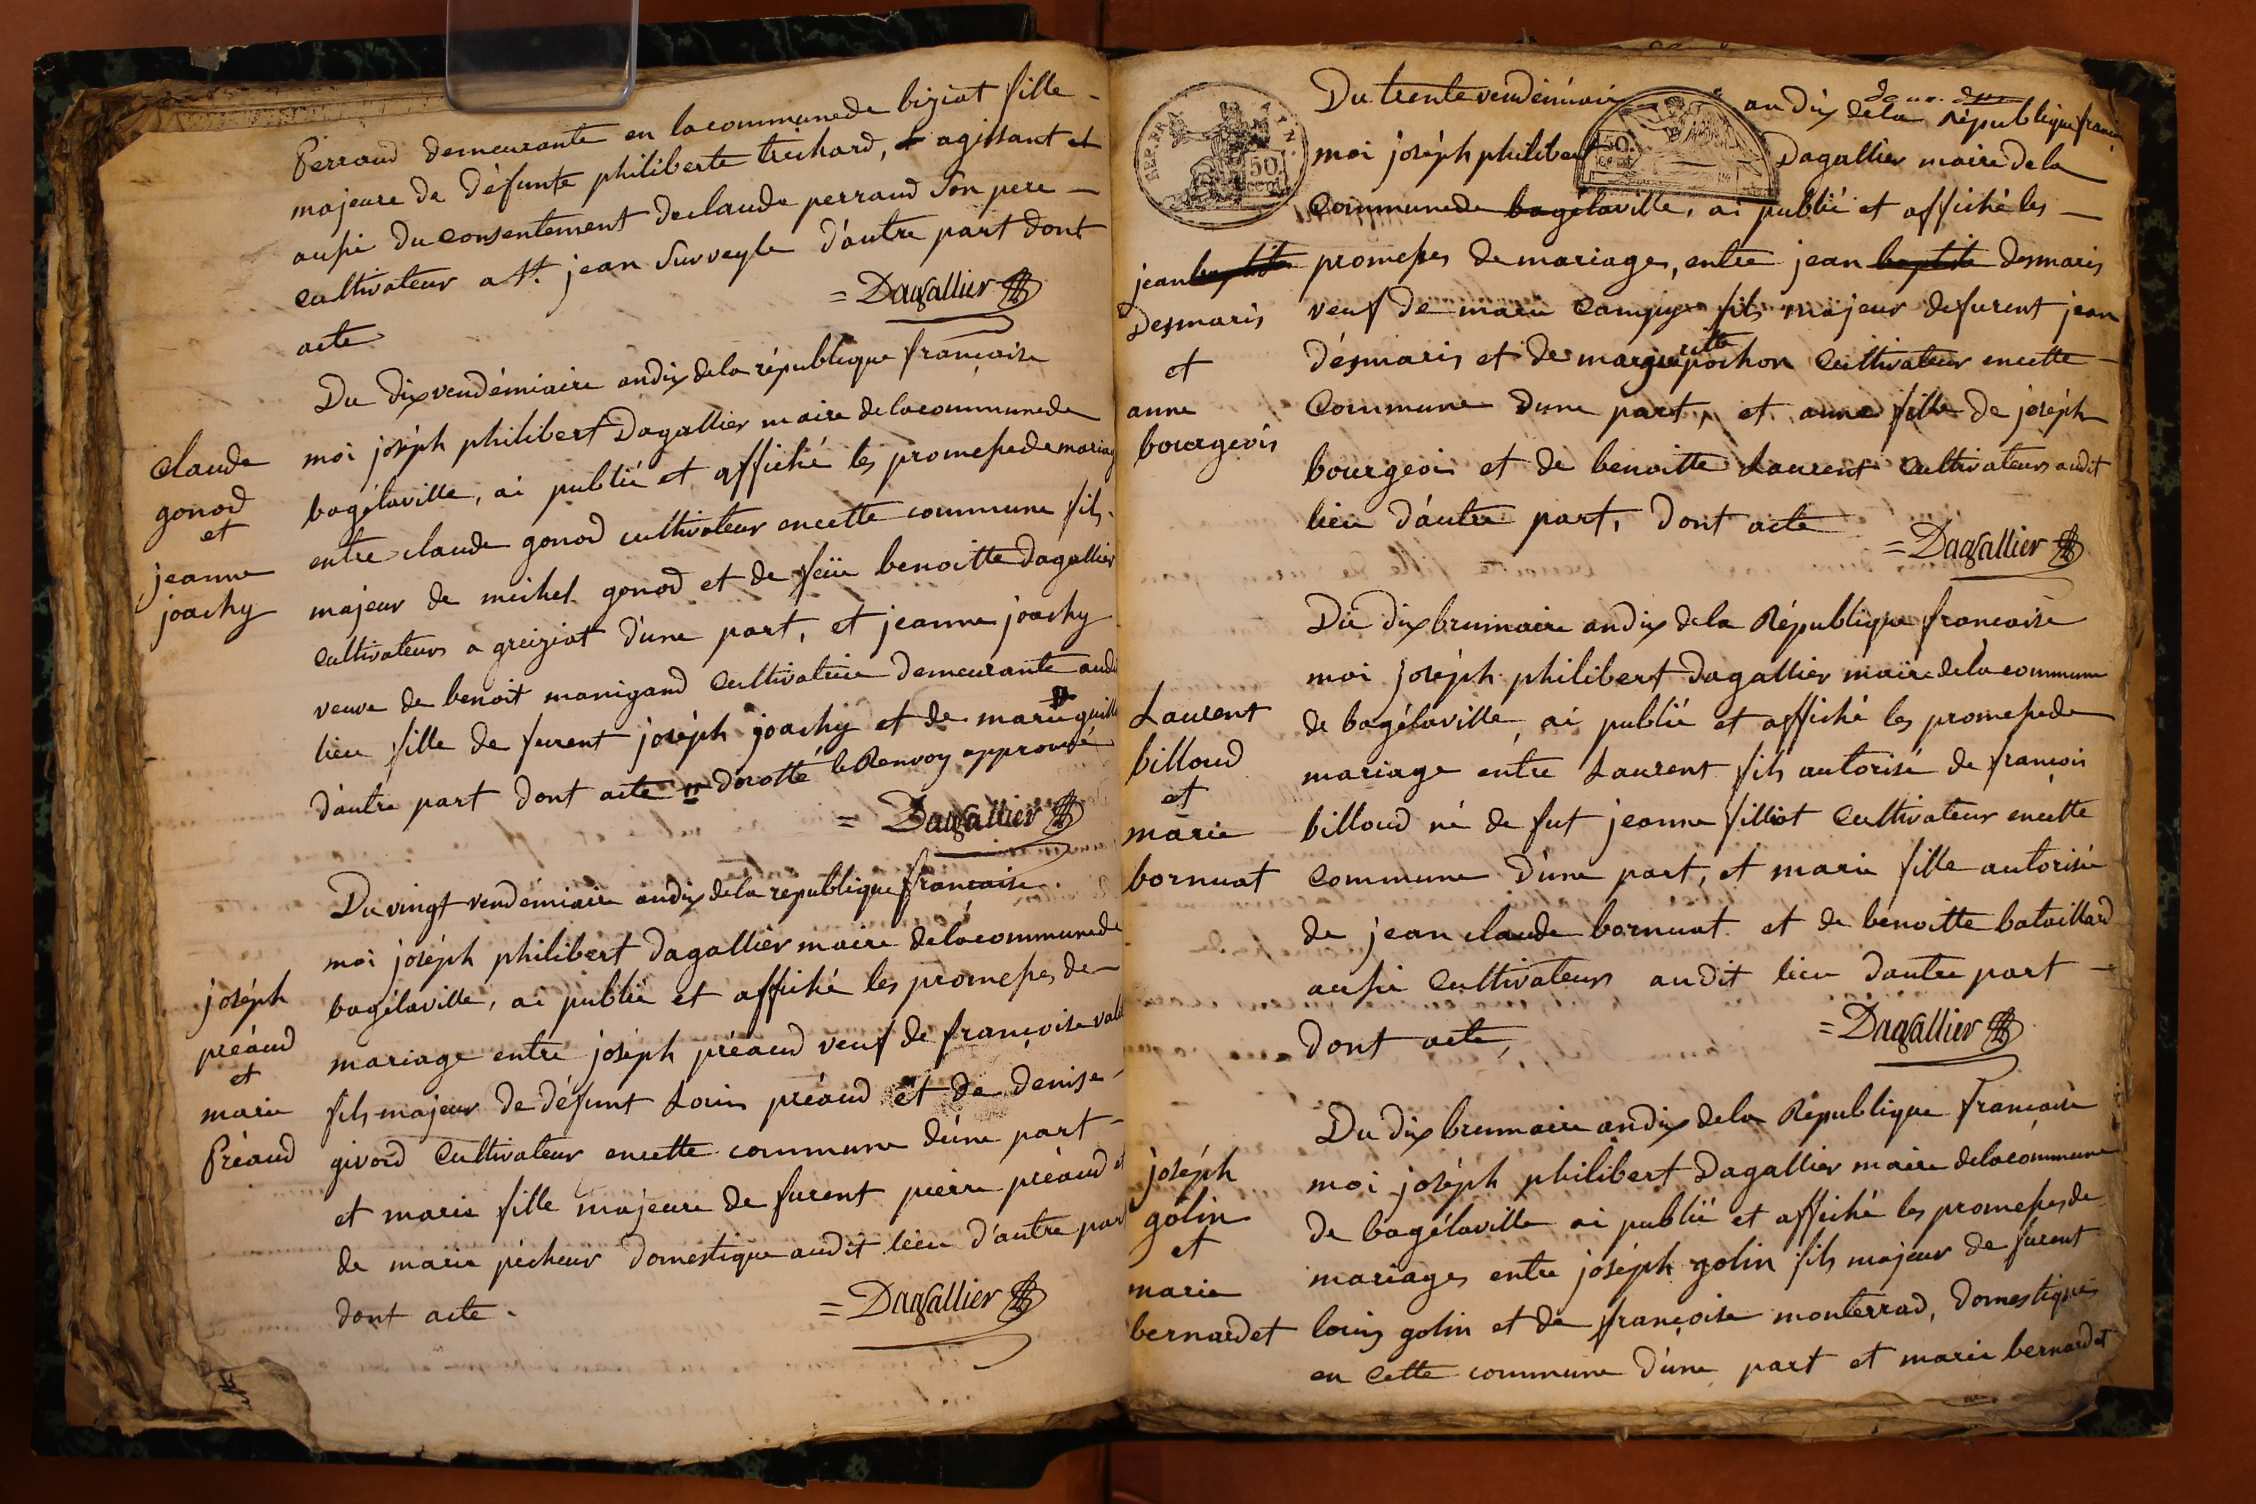 Perraud demeurante en la commune de biziat fille
majeure de défunte philiberte trichard, agissant et
aussi du consentement de claude perraud son pere
cultivateur a St. jean Surveyle d'autre part dont
acte
= Dagallier
Du dix vendémiaire an dix de la république française
claude
gonod
et
jeanne
joachy
moi joséph philibert Dagallier maire de la commune de
bagélaville, ai publié et affiché les promesse de mariag
entre claude gonod cultivateur en cette commune fils
majeur de michel gonod et de feüe benoitte Dagallier
cultivateurs a greziat d'une part, et jeanne joachy
veuve de benoit manigand cultivatrice demeurante aud
lieu fille de furent joséph joachy et de marie guill
d'autre part dont acte dorotté le Renvoy approuvé
= Dagallier
Du vingt vendémiaire an dix de la republique française
joséph
préaud
et
marie
Préaud
moi joséph philibert Dagallier maire de la commune de
bagélaville, ai publié et affiché les promesses de
mariage entre joséph préaud veuf de françoise
fils majeur de défunt Louis préaud et de denise
givord cultivateur en cette commune d'une part
et marie fille majeure de furent pierre préaud et
de marie pécheur domestique audit lieu d'autre part
dont acte.
= Dagallier
REP. FRA.
50 cent
50 Cent
Du trente vendémiaire an dix de la République franc
moi joséph philibert Dagallier maire de la
commune de bagélaville, ai publié et affiché les
jean baptiste
Desmaris
et
anne
bourgeois
promesses de mariages, entre jean baptiste desmaris
veuf de marie fils majeur de furent jean
désmaris et de marguerite pochon cultivateur en cette
commune d'une part, et anne fille de joséph
bourgeois et de benoitte Laurent cultivateurs audit
lieu d'autre part, dont acte
= Dagallier
Du dix brumaire an dix de la République française
moi joséph philibert Dagallier maire de la commune
Laurent
billoud
et
marie
bornuat
de bagélaville, ai publié et affiché les promesse de
mariage entre Laurent fils autorisé de françois
billoud né de fut jeanne filliot cultivateur en cette
commune d'une part, et marie fille autorisée
de jean claude bornuat et de benoitte bataillard
aussi cultivateurs audit lieu d'autre part
dont acte,
= Dagallier
Du dix brumaire an dix de la République française
joséph
golin
et
marie
bernardet
moi joséph philibert Dagallier maire de la commune
de bagélaville ai publié et affiché les promesses de
mariages entre joséph golin fils majeur de furent
louis golin et de françoise monterrad, domestiques
en cette commune d'une part et marie bernardet